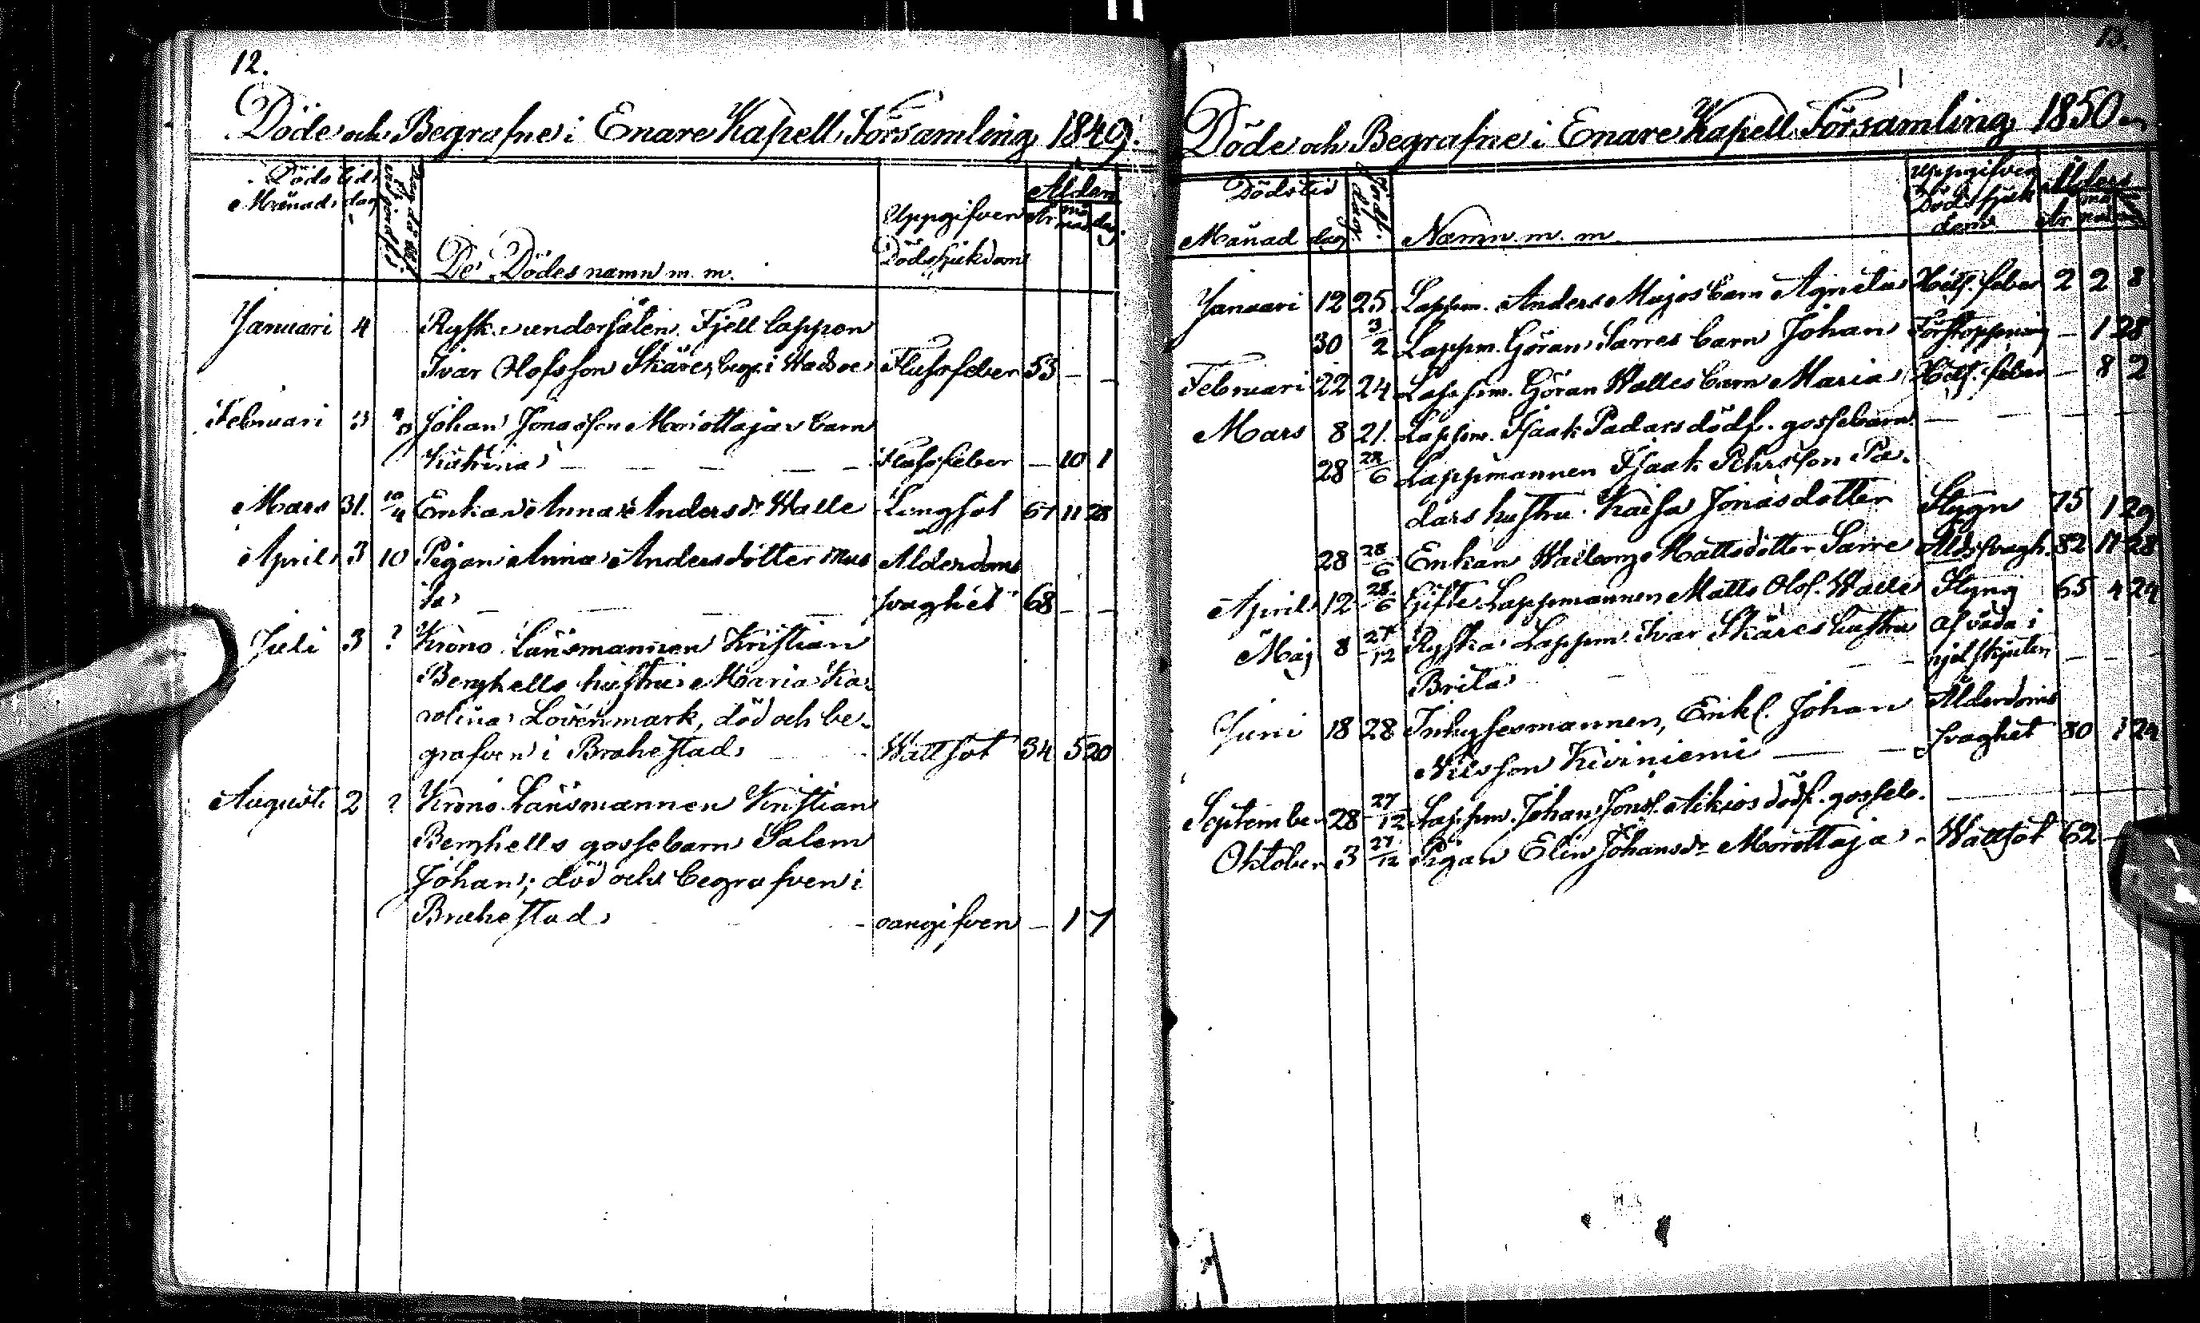 12.
Döde och Begrafne i Enare Kapell Församling 1849.
Dödstid Ålder
Månad dag Uppgifven År må nad dag
De Dödes namn m. m. Dödssjukdom
Januari 4 Rysk undersåten Fjell lappen
Ivar Olofsson Skäre, begr. i Wadsoe Flussfeber 53 – –
Februari 3 Johan Jonasson Morottajas barn
Katrina – – – – Flussfeber – 10 1
Mars 31. 10/4 Enkan Anna Andersdr Walle Lungsot 67 11 28
April 3 10 Pigan Anna Andersdotter Mus Ålderdoms
ta – – – – svaghet 68 – –
Juli 3 ? Krono Länsmannen Kristian
Berghells hustru Maria Ka-
rolina Lovénmark, död och be-
grafven i Brahestad Wattsot 34 5 20
Augusti 2 ? Krono Länsmannen Kristian
Berghells gossebarn Salem
Johan; död och begrafven i
Brahestad – oangifven – 1 7
13.
Döde och Begrafne i Enare Kapell Församling 1850
Dödstid Uppgifven Ålder
Månad dag Namn m. m. Dödssjuk dom År
Januari 12 25 Lappm. Anders Majos barn Agneta Hets. feber 2 2 8
30 3/2 Lappm. Göran Sarres barn Johan Förstoppning – 1 28
Februari 22 24 Lappm. Göran Walles barn Maria Hets. feber – 8 2
Mars 8 21. Lappm. Isaak Padars dödf. gossebarn – – – –
28 28/6 Lappmannen Isaak Pehrsson Pa-
dars hustru Kaisa Jonasdotter Stygn 75 1 29
28 28/6 Enkan Walborg Mattsdotter Sarre Åldsvagh. 82 11 28
April 12 28/6 Gifte Lappmannen Matts Olof. Walle Styng 65 4 24
Maj 8 27/12 Ryska Lappm. Ivar Skäres hustru af våda i
Brita – – hjelskjuten – – –
Juni 18 28 Inhysesmannen, Enkl. Johan Ålderdoms
Nilsson Kiviniemi – – svaghet 80 1 24
September 28 27/12 Lappm. Johan Jonss. Aikios dödf. gosseb. –
Oktober 3 27/12 Pigan Elin Johansdr Morottaja – Wattsot 62 –